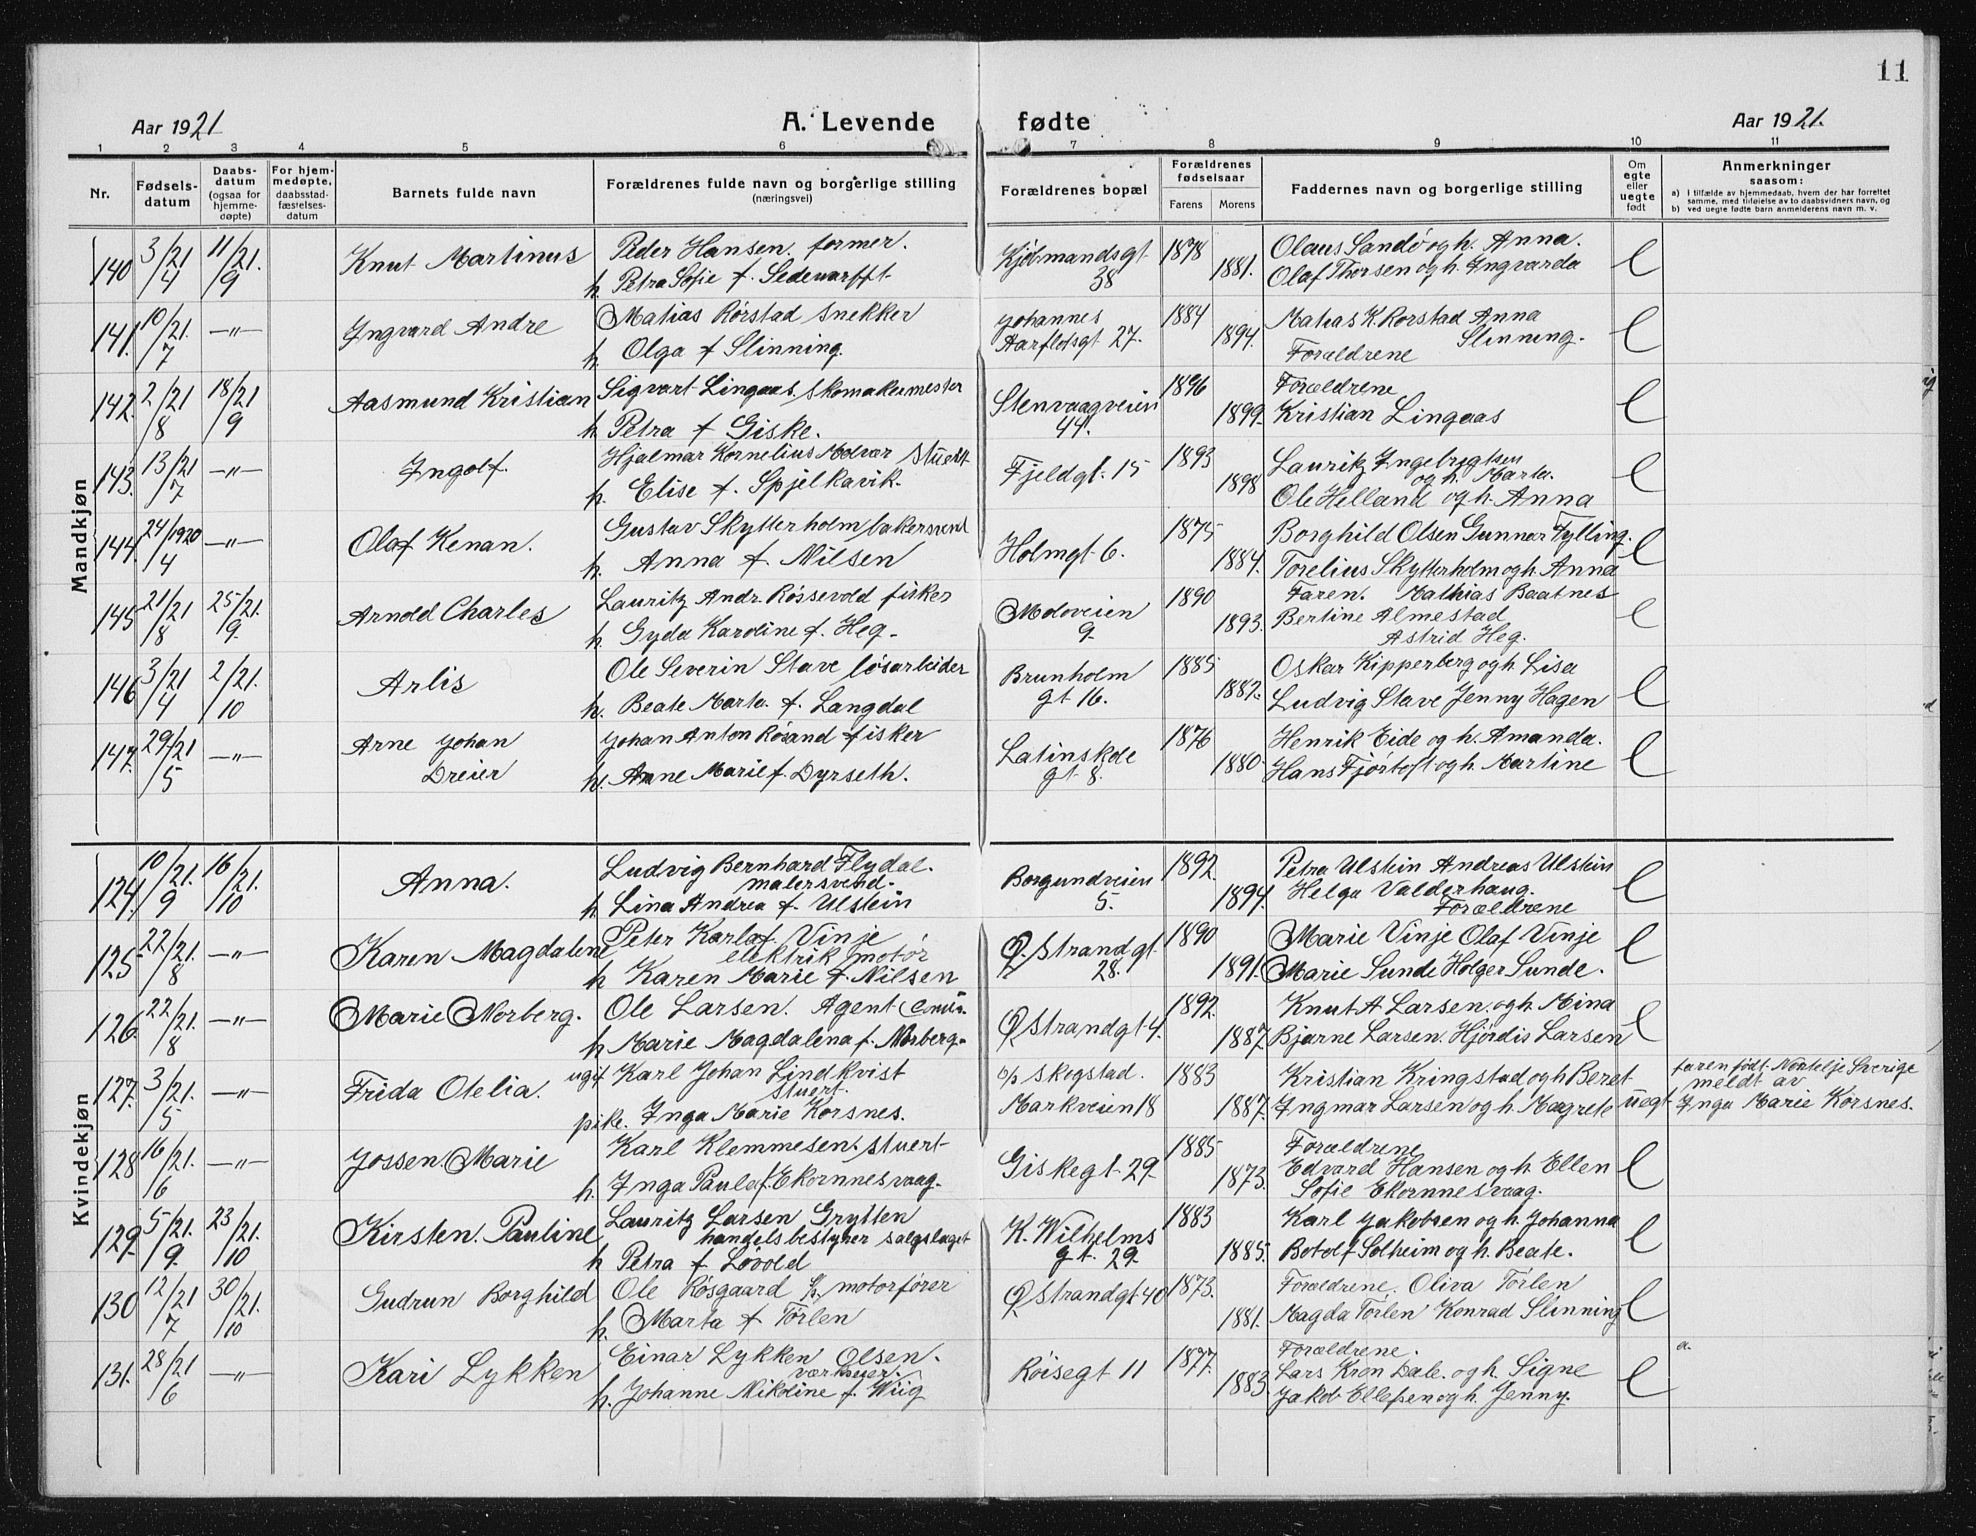 11
Aar 1921
A. Levende fødte
Aar 1921.
1 2 3 4 5 6 7 8 9 10 11
Nr.
Fødsels-
datum
Daabs-
datum
(ogsaa for
hjemme-
døpte)
For hjem-
medøpte,
daabsstad-
fæstelses-
datum
Barnets fulde navn
Forældrenes fulde navn og borgerlige stilling
(næringsvei)
Forældrenes bopæl
Forældrenes
fødselsaar
Farens Morens
Faddernes navn og borgerlige stilling
Om
egte
eller
uegte
født
Anmerkninger
saasom:
a) I tilfælde av hjemmedaab, hvem der har forrettet
samme, med tilføielse av to daabsvidners navn, og
b) ved uegte fødte barn anmelderens navn m. v.
Mandkjøn
140 3/21 4 11/21. 9 Knut Martinus
Peder Hansen. former.
h. Petra Sofie f.
Kjøbmandsgt 38
1878 1881.
Olaus Sandø og h. Anna.
Olaf Thorsen og h. Ingvarda
e
141. 10/21. 7 —"— Ingvard Andre
Matias Rørstad snekker
h. Olga f Slinning.
Johannes
Aarflotsgt 27.
1884 1894.
Matias K. Rørstad Anna
Slinning.
Forældrene
e
142. 2/21 8 18/21 9 Aasmund Kristian
Sigvart Lingaas, skomakermester
h. Petra f Giske.
Stenvaagveien
44.
1896 1899.
Forældrene
Kristian Lingaas
e
143. 13/21 7 —"— Ingolf.
Hjalmar Kornelius Molvær stuert
h. Elise f. Spjelkavik.
Fjeldgt. 15
1893 1898
Lauritz Ingebrigtsen
og h. Marta.
Ole Helland og h. Anna
e
144. 24/1920 4 —"— Olaf Kenan.
Gustav Skytterholm bakersvend
h. Anna f Nilsen
Holmgt 6.
1875 1884.
Borghild Olsen Gunnar Fylling.
Torelius Skytterholm og h. Anna
e
145 21/21 8 25/21. 9. Arnold Charles
Lauritz Andr. Røssevold fisker
h. Gyda Karoline f. Heg.
Moloveien
9.
1890 1893.
Faren. Mathias Baatnes
Bertine Almestad
Astrid Heg.
e
146 3/21 4 2/21. 10 Arlis
Ole Severin Stave løsarbeider
h. Beate Marta f. Langdal
Brunholm
gt 16.
1885 1887.
Oskar Kipperberg og h. Lisa
Ludvig Stave Jenny Hagen
e
147. 29/21 5 —"— Arne Johan
Dreier
Johan Anton Røsand fisker
h. Anne Marie f. Dyrseth.
Latinskole
gt 8.
1876 1880.
Henrik Eide og h. Amanda.
Hans Fjørtoft og h. Martine
e
Kvindekjøn
124. 10/21. 9 16/21. 10 Anna.
Ludvig Bernhard Flydal.
malersvend.
h Lina Andrea f. Ulstein
Borgundveien
5.
1892. 1894.
Petra Ulstein Andreas Ulstein
Helga Valderhaug.
Forældrene
e
125 22/21. 8 —"— Karen Magdalene
Peter Karlaf. Vinje
elektrik motør
h Karen Marie f. Nilsen
Ø. Strandgt.
28.
1890 1891.
Marie Vinje Olaf Vinje
Marie Sunde Holger Sunde.
e
126. 22/21. 8 —"— Marie Norberg.
Ole Larsen. Agent
h Marie Magdalena f. Norberg.
Ø Strandgt 4.
1892. 1887.
Knut A Larsen. og h. Mina
Bjarne Larsen. Hjørdis Larsen
e
127. 3/21. 5 —"— Frida Otelia.
ugif Karl Johan Lindkvist
stuert.
pike. Inga Marie Korsnes.
Skegstad.
Markveien 18
1883 1887.
Kristian Kringstad og h Beret
Ingmar Larsen og h. Magrete
uegt
faren født. Nortelje Sverige
meldt av
Inga Marie Korsnes.
128 16/21. 6 —"— Jossen Marie
Karl Klemmesen. stuert
h. Inga Paula f. Ekornnesvaag.
Giskegt. 29.
1885 1873.
Forældrene
Edvard Hansen og h. Ellen
Sofie Ekornnesvaag.
e
129. 5/21. 9. 23/21. 10 Kirsten. Pauline
Lauritz Larsen Grytten
handelsbestyrer salgslaget
h Petra f Løvold
K. Wilhelms
gt. 29.
1883 1885.
Karl Jakobsen og h. Johanna
Botolf Solheim og h. Beate.
e
130 12/21 7 30/21. 10 Gudrun Borghild
Ole Røsgaard motorfører
h. Marta f Tørlen
Ø Strandgt 40
1873. 1881.
Forældrene. Oliva Tørlen
Magda Tørlen Konrad Slinning
e
131. 28/21 6 —"— Kari Lykken
Einar Lykken Olsen.
h. Johanne Nikoline f. Wiig
Røisegt 11
1877. 1883.
Forældrene.
Lars Kron Dale. og h. Signe
Jakob Ellefsen og h. Jenny.
e
a.